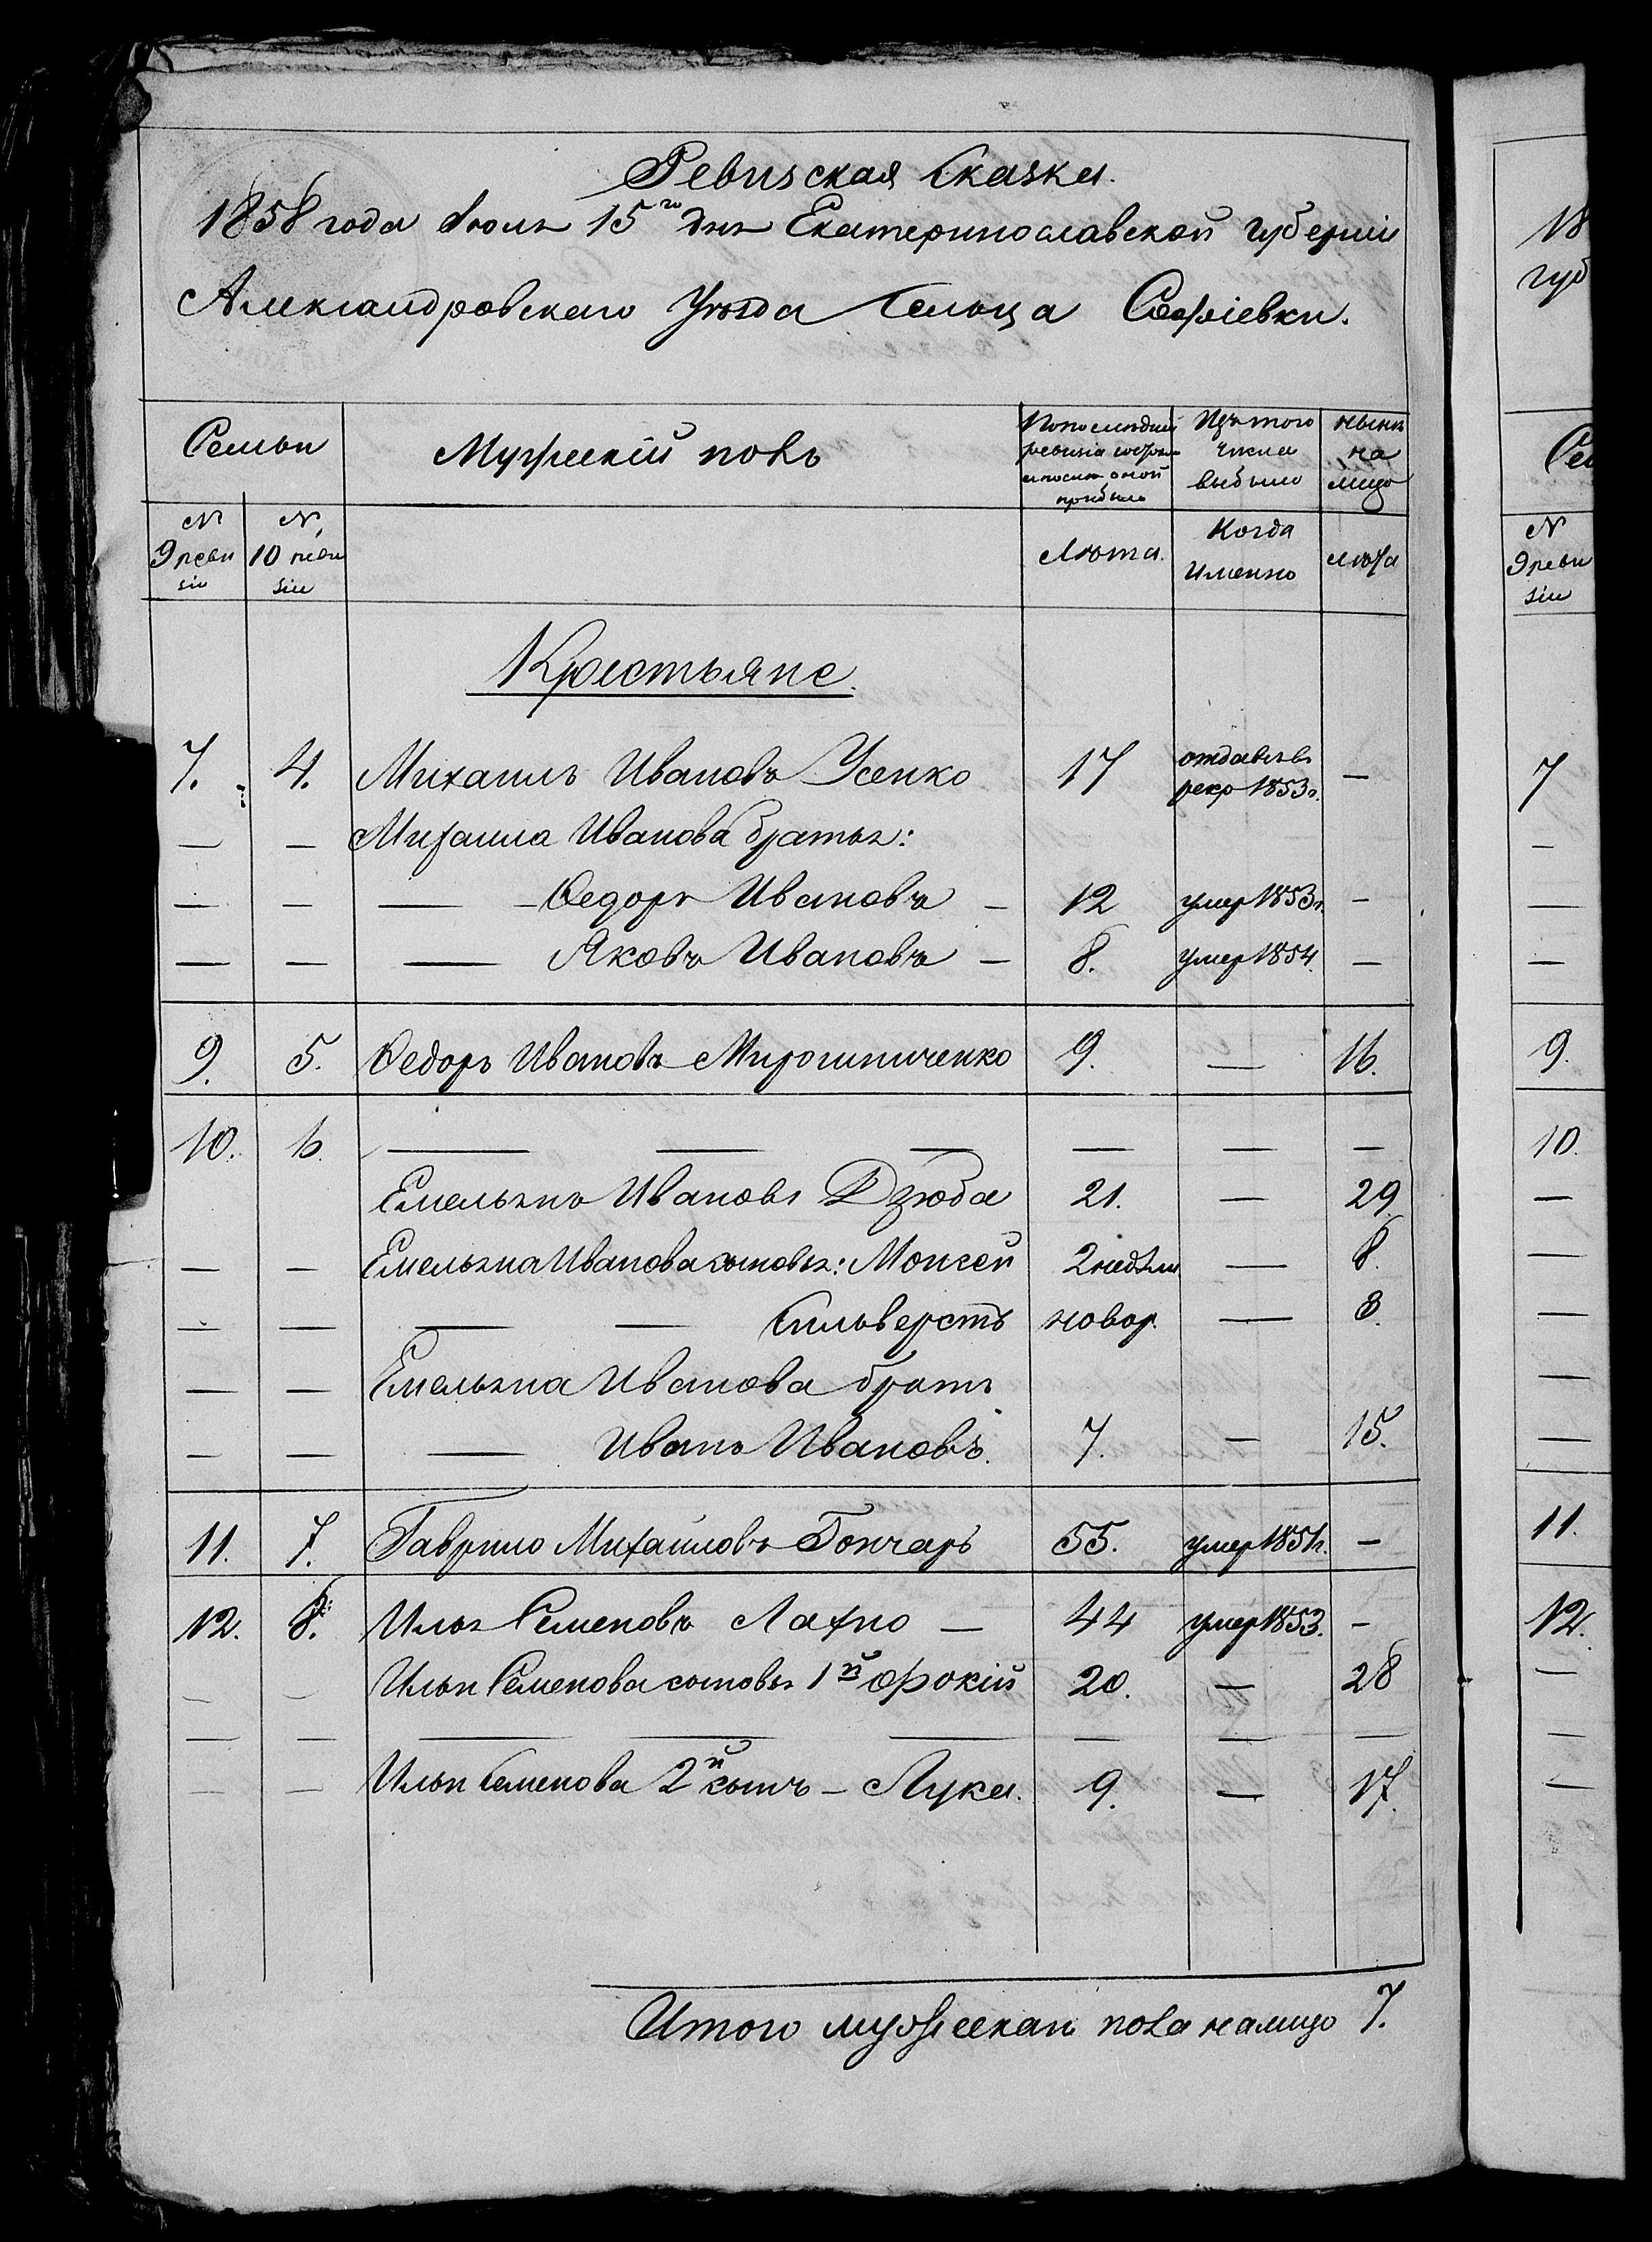 Ревизская Сказка.
1858 года Июля 15го дня Екатеринославской губерніи
Александровскаго Уѣзда Сельца Софіевки.
Семьи
Мужескій полъ
По последней ревизіи состояло и после оной прибыло
Изъ того числа выбыло
нынѣ на лицо
N 9 ревизіи
N 10 ревизіи
Лѣта.
Когда Именно
лѣта
Крестьяне.
7. 4. Михаилъ Ивановъ Усенко 17 отданъ въ рекр 1853г. —
— — Михаила Иванова братья:
— — — — Федоръ Ивановъ — 12 умер 1853г. —
— — — Яковъ Ивановъ — 8. умер 1854. —
9. 5. Федоръ Ивановъ Мирошниченко 9. — 16.
10. 6. — — — — — —
Емельянъ Ивановъ Дзюба 21. — 29.
— — Емельяна Иванова сыновья: Моисей 2 недѣли — 8.
— — — — Сильверстъ новор. — 8.
— — Емельяна Иванова братъ
— — — Иванъ Ивановъ. 7. — 15.
11. 7. Гаврило Михайловъ Гончаръ 55. умер 1851г. —
12. 8. Илья Семеновъ Лахно — 44 умер 1853. —
— — Ильи Семенова сыновья 1й Фокій 20. — 28
— — — — — — — —
— — Ильи Семенова 2й сынъ — Лука. 9. — 17.
Итого мужескаго пола на лицо 7.
18
губ
Сем
N
9 реви
зіи
7
—
—
—
9.
10.
—
—
—
—
—
11.
12.
—
—
—